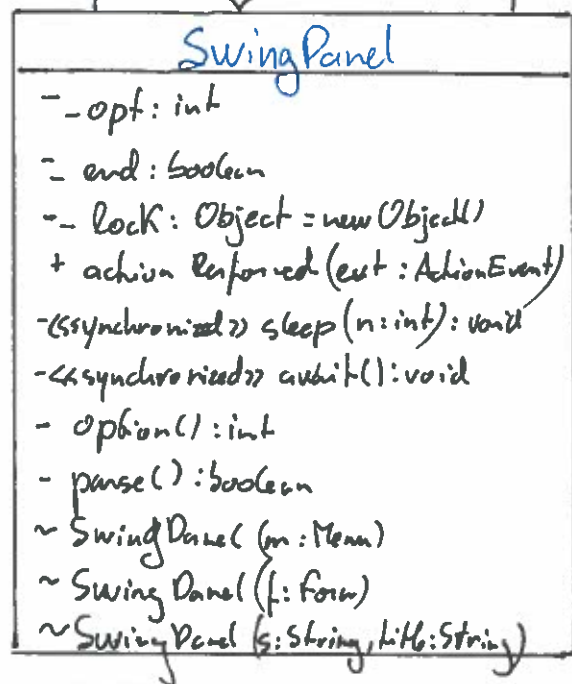 SwingPanel
- _opt: int
- _end: boolean
- _lock: Object = new Object()
+ actionPerformed(evt: ActionEvent)
- <<synchronized>> sleep(n: int): void
- <<synchronized>> await(): void
- option(): int
- parse(): boolean
~ SwingPanel(m: Menu)
~ SwingPanel(f: Form)
~ SwingPanel(s: String, title: String)